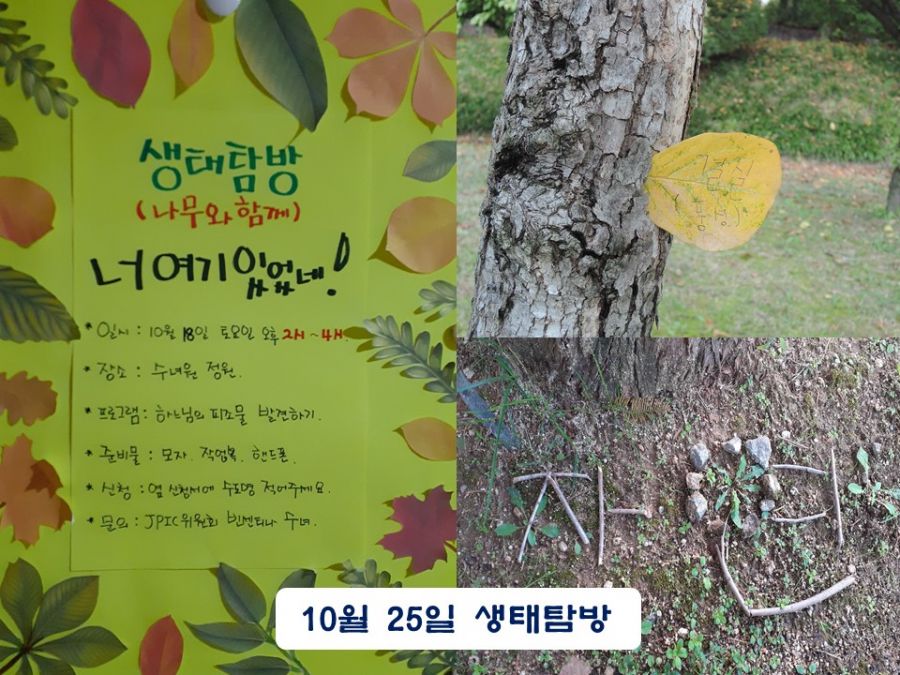 생태탐방
(나무와 함께)
너 여기 있었네!
* 일시 : 10월 18일 토요일 오후 2시~4시.
* 장소 : 수녀원 정원.
* 프로그램 : 하느님의 피조물 발견하기.
* 준비물 : 모자. 작업복. 핸드폰.
* 신청 : 옆 신청서에 수도명 적어주세요.
* 문의 : JPIC위원회 빈센티나 수녀.
자연
10월 25일 생태탐방